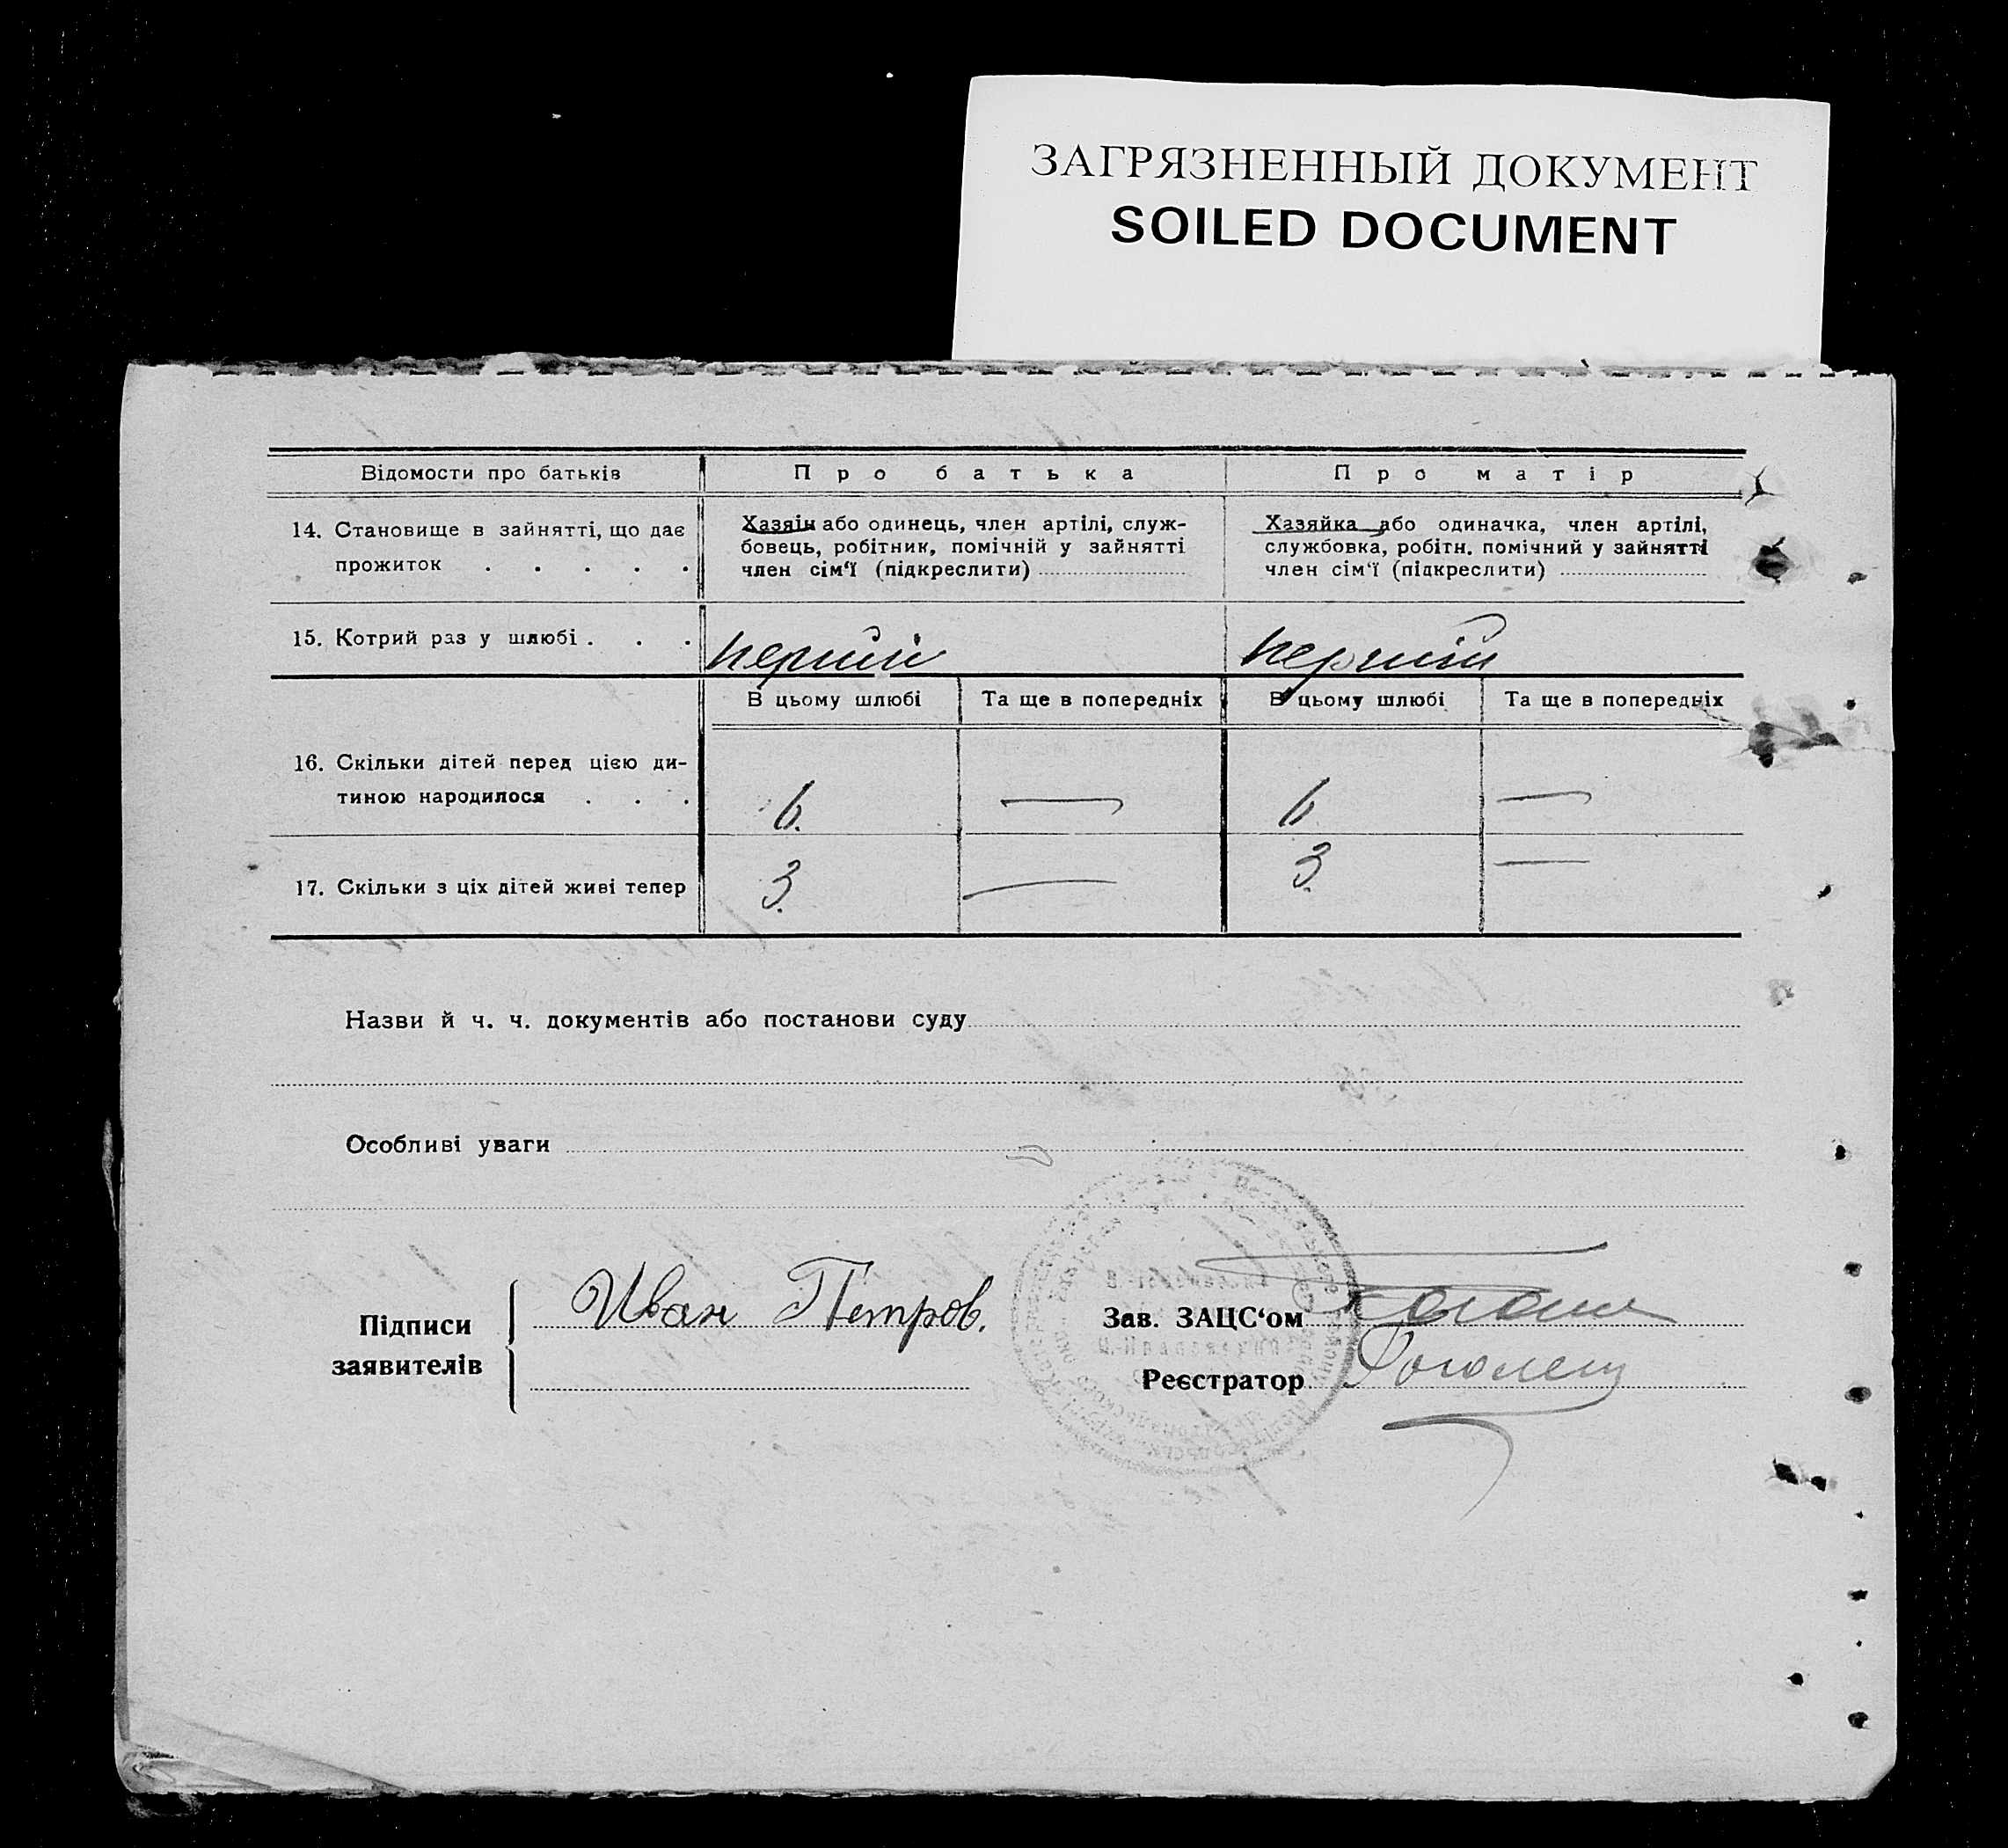 ЗАГРЯЗНЕННЫЙ ДОКУМЕНТ
SOILED DOCUMENT
Відомости про батьків
Про батька
Про матір
14. Становище в зайнятті, що дає
прожиток . . . . .
Хазяін або одинець, член артілі, служ-
бовець, робітник, помічній у зайнятті
член сім‘ї (підкреслити)
Хазяйка або одиначка, член артілі,
службовка, робітн. помічний у зайнятті
член сім‘ї (підкреслити)
15. Котрий раз у шлюбі . . .
перший
перший
В цьому шлюбі
Та ще в попередніх
В цьому шлюбі
Та ще в попередніх
16. Скільки дітей перед цією ди-
тиною народилося . . .
6. — 6 —
17. Скільки з ціх дітей живі тепер
3. — 3. —
Назви й ч. ч. документів або постанови суду
Особливі уваги
Підписи
заявителів
Иван Петров.
Зав. ЗАЦС‘ом
Реєстратор